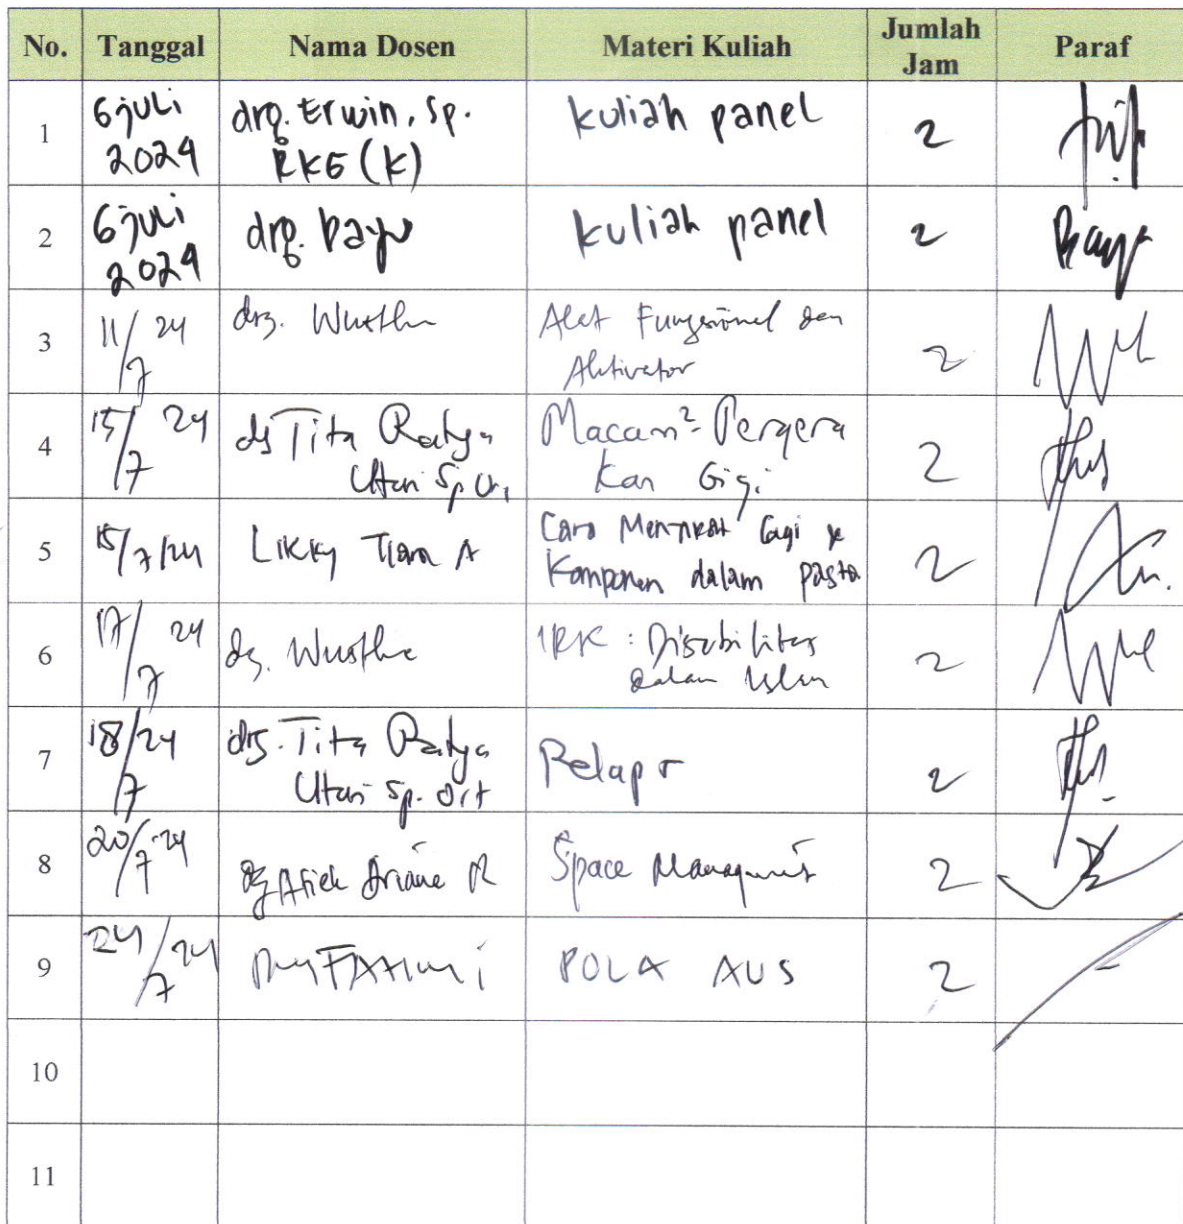 No. Tanggal Nama Dosen Materi Kuliah Jumlah Jam Paraf
1 6 juli 2024 drg. Erwin, Sp. RKG (K) kuliah panel 2
2 6 juli 2024 drg. bayu kuliah panel 2
3 11/7 24 drg. Alat Fungsional dan Aktivator 2
4 15/7 24 drg Tita Ratya Utari Sp Ort Macam²- Pergera kan Gigi 2
5 15/7/24 Likky Tiara A Cara Menyikat Gigi & Komponen dalam pasta 2
6 17/7 24 drg. IRK : Disabilitas dalam Islam 2
7 18/7 24 drg. Tita Ratya Utari Sp. Ort Relaps 2
8 20/7 24 drg Atiek Ariane R Space Management 2
9 24/7 24 POLA AUS 2
10
11